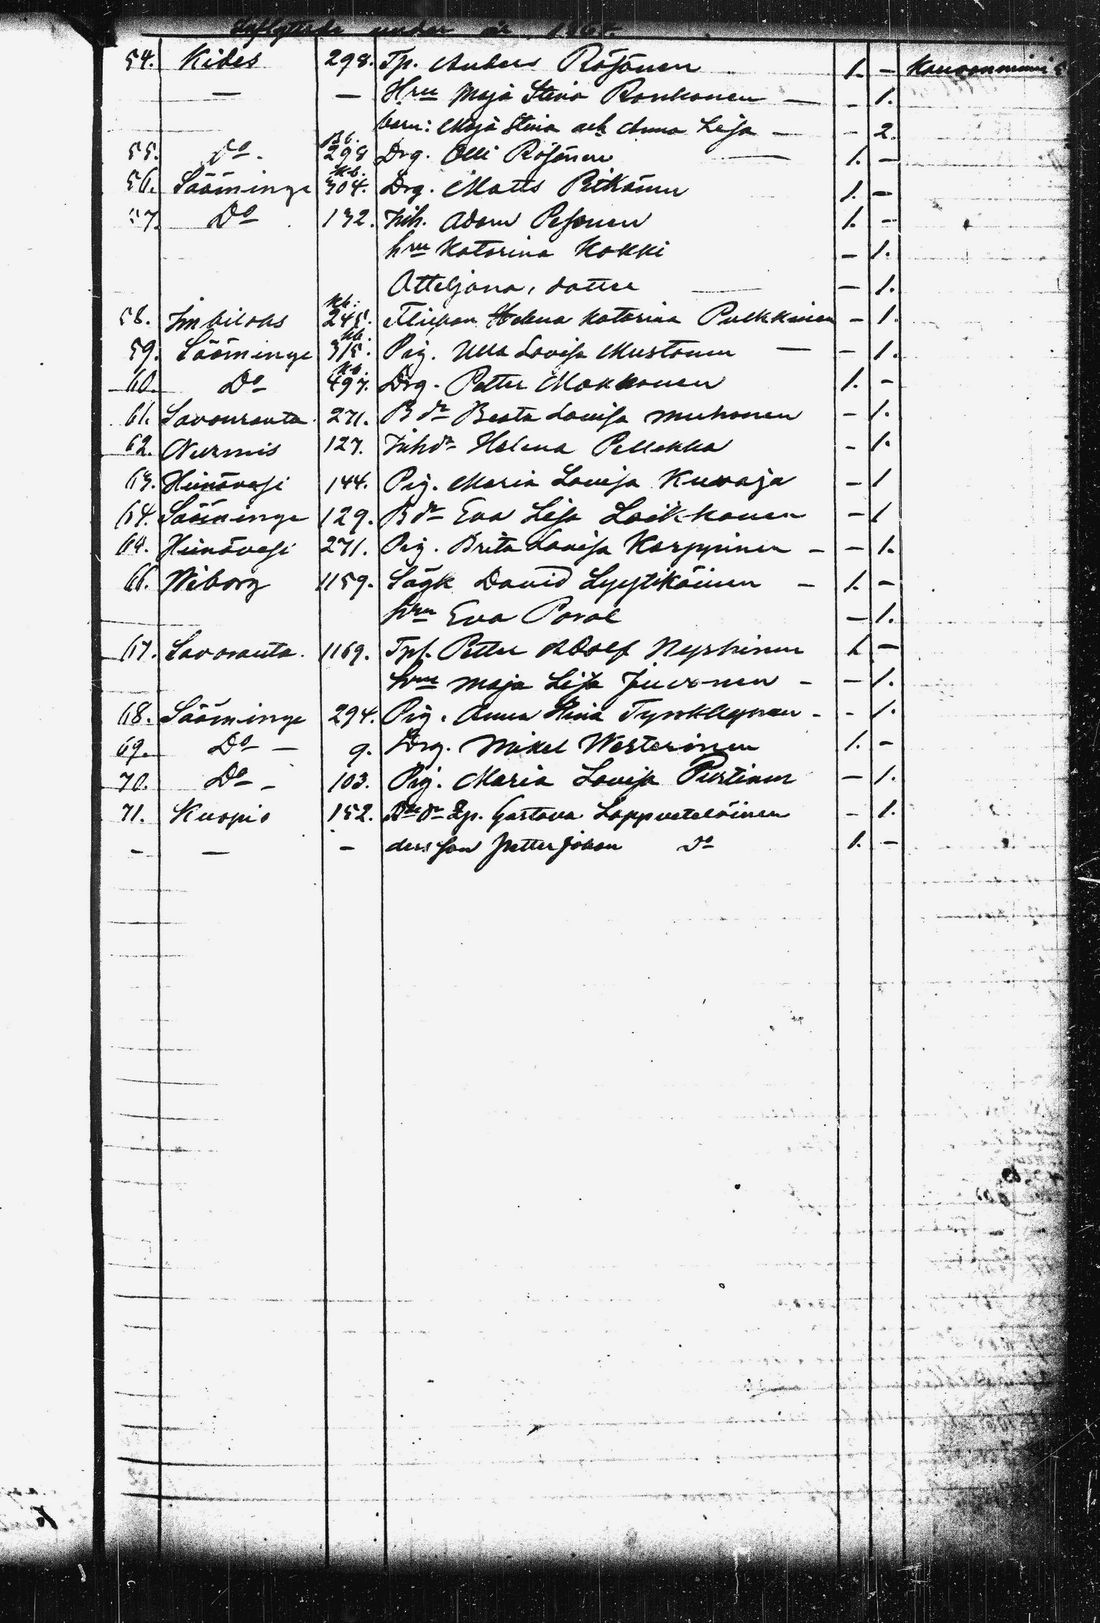 Inflyttade under år 186
54. Kides 298. Tp. Anders Röjönen 1. -
— — Hru Maja Stina Ronkonen — - 1.
barn: Maja Stina och Anna Lisa — - 2.
55. Do. 298 Drg. Olli Röjönen — 1. -
56. Sääminge 304. Drg. Matts Pitkänen 1. -
57. Do 132. Inh. Adam Pesonen 1. -
hru Katarina Kokki - 1.
dotter — - 1.
58. Imbilaks 245. Helena Katarina Pulkkinen - 1.
59. Sääminge 315. Pig. Ulla Lovisa Mustonen — - 1.
60. Do 497. Drg. Petter Makkonen 1. -
61. Savonranta 271. B dr Beata Lovisa Muhonen - 1.
62. Nurmis 127. Inhdr Helena Pellekka - 1.
63. Heinävesi 144. Pig. Maria Lovisa Kuvaja - 1
64. Sääminge 129. B dr Eva Lisa Loikkanen - 1
64. Heinävesi 271. Pig. Brita Lovisa Karppinen - - 1.
66. Wiborg 1159. Sågk David Lyytikäinen - 1. -
hru Eva Paral - 1.
67. Savoranta. 1169. Tpf. Petter Adolf Nyrhinen 1. -
hru Maja Lisa Juvonen - - 1.
68. Sääminge 294. Pig. Anna Stina - - 1.
69. Do — 9. Drg. Mikel Westerinen 1. -
70. Do - 103. Pig. Maria Lovisa Purtinen - 1.
71. Kuopio 152. Gustava Lappveteläinen - 1.
— — — dess son Petter Johan Do 1. -